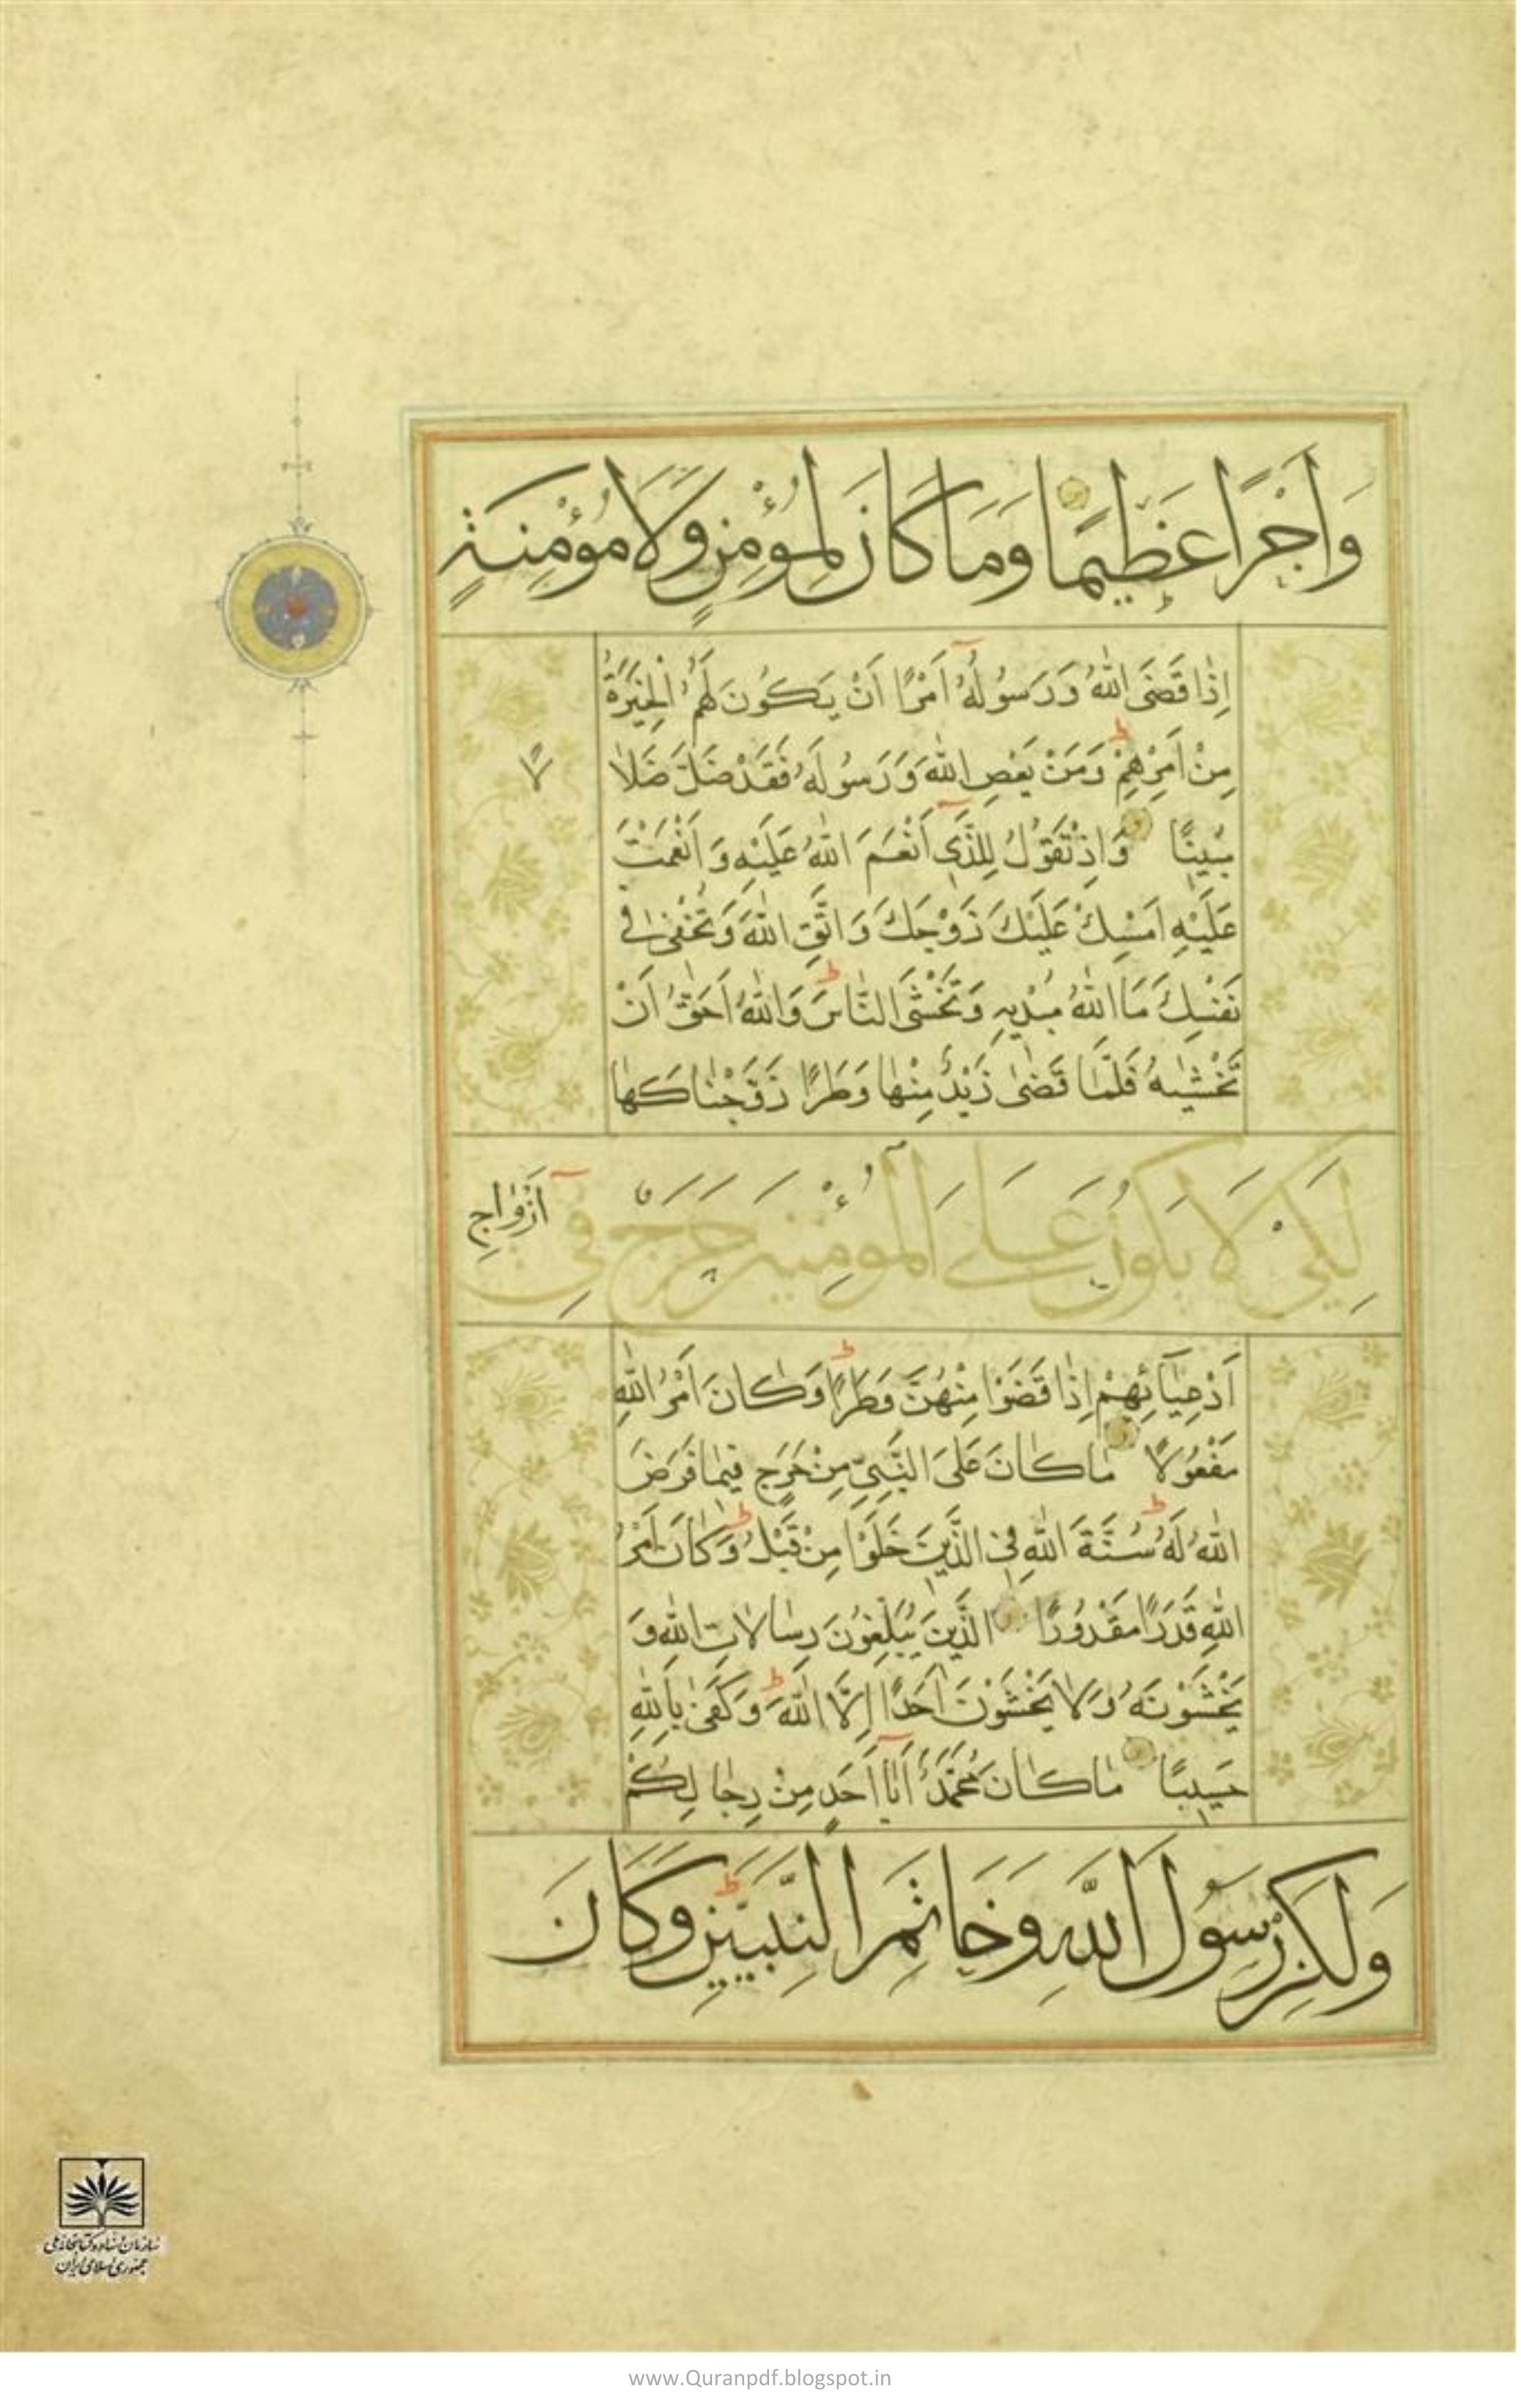 وَاَجْرًا عَظِيمًا وَمَا كَانَ لِمُؤْمِنٍ وَلَا مُؤْمِنَةٍ
اِذٰا قَضَى اللّٰهُ وَرَسُولُهُ اَمْرًا اَنْ يَكُونَ لَهُمُ الْخِيَرَةُ
مِنْ اَمْرِهِمْ وَمَنْ يَعْصِ اللّٰهَ وَرَسُولَهُ فَقَدْ ضَلَّ ضَلاٰلًا
مُبِينًا وَاِذْ تَقُولُ لِلَّذِي اَنْعَمَ اللّٰهُ عَلَيْهِ وَاَنْعَمْتَ
عَلَيْهِ اَمْسِكْ عَلَيْكَ زَوْجَكَ وَاتَّقِ اللّٰهَ وَتُخْفِى فِي
نَفْسِكَ مَا اللّٰهُ مُبْدِيهِ وَتَخْشَى النّٰاسَ وَاللّٰهُ اَحَقُّ اَنْ
تَخْشٰيهُ فَلَمّٰا قَضٰى زَيْدٌ مِنْهٰا وَطَرًا زَوَّجْنٰاكَهٰا
لِكَيْ لَا يَكُونَ عَلَى الْمُؤْمِنِينَ حَرَجٌ فِي اَزْوٰاجِ
اَدْعِيٰائِهِمْ اِذٰا قَضَوْا مِنْهُنَّ وَطَرًا وَكٰانَ اَمْرُ اللّٰهِ
مَفْعُولًا مٰا كٰانَ عَلَى النَّبِيِّ مِنْ حَرَجٍ فِيمٰا فَرَضَ
اللّٰهُ لَهُ سُنَّةَ اللّٰهِ فِي الَّذِينَ خَلَوْا مِنْ قَبْلُ وَكٰانَ اَمْرُ
اللّٰهِ قَدَرًا مَقْدُورًا الَّذِينَ يُبَلِّغُونَ رِسٰالاٰتِ اللّٰهِ وَ
يَخْشَوْنَهُ وَلاٰ يَخْشَوْنَ اَحَدًا اِلَّا اللّٰهَ وَكَفٰى بِاللّٰهِ
حَسِيبًا مٰا كٰانَ مُحَمَّدٌ اَبٰا اَحَدٍ مِنْ رِجٰالِكُمْ
وَلٰكِنْ رَسُولَ اللّٰهِ وَخَاتَمَ النَّبِيِّينَ وَكَانَ
سازمان اسناد و کتابخانه ملی
جمهوری اسلامی ایران
www.Quranpdf.blogspot.in